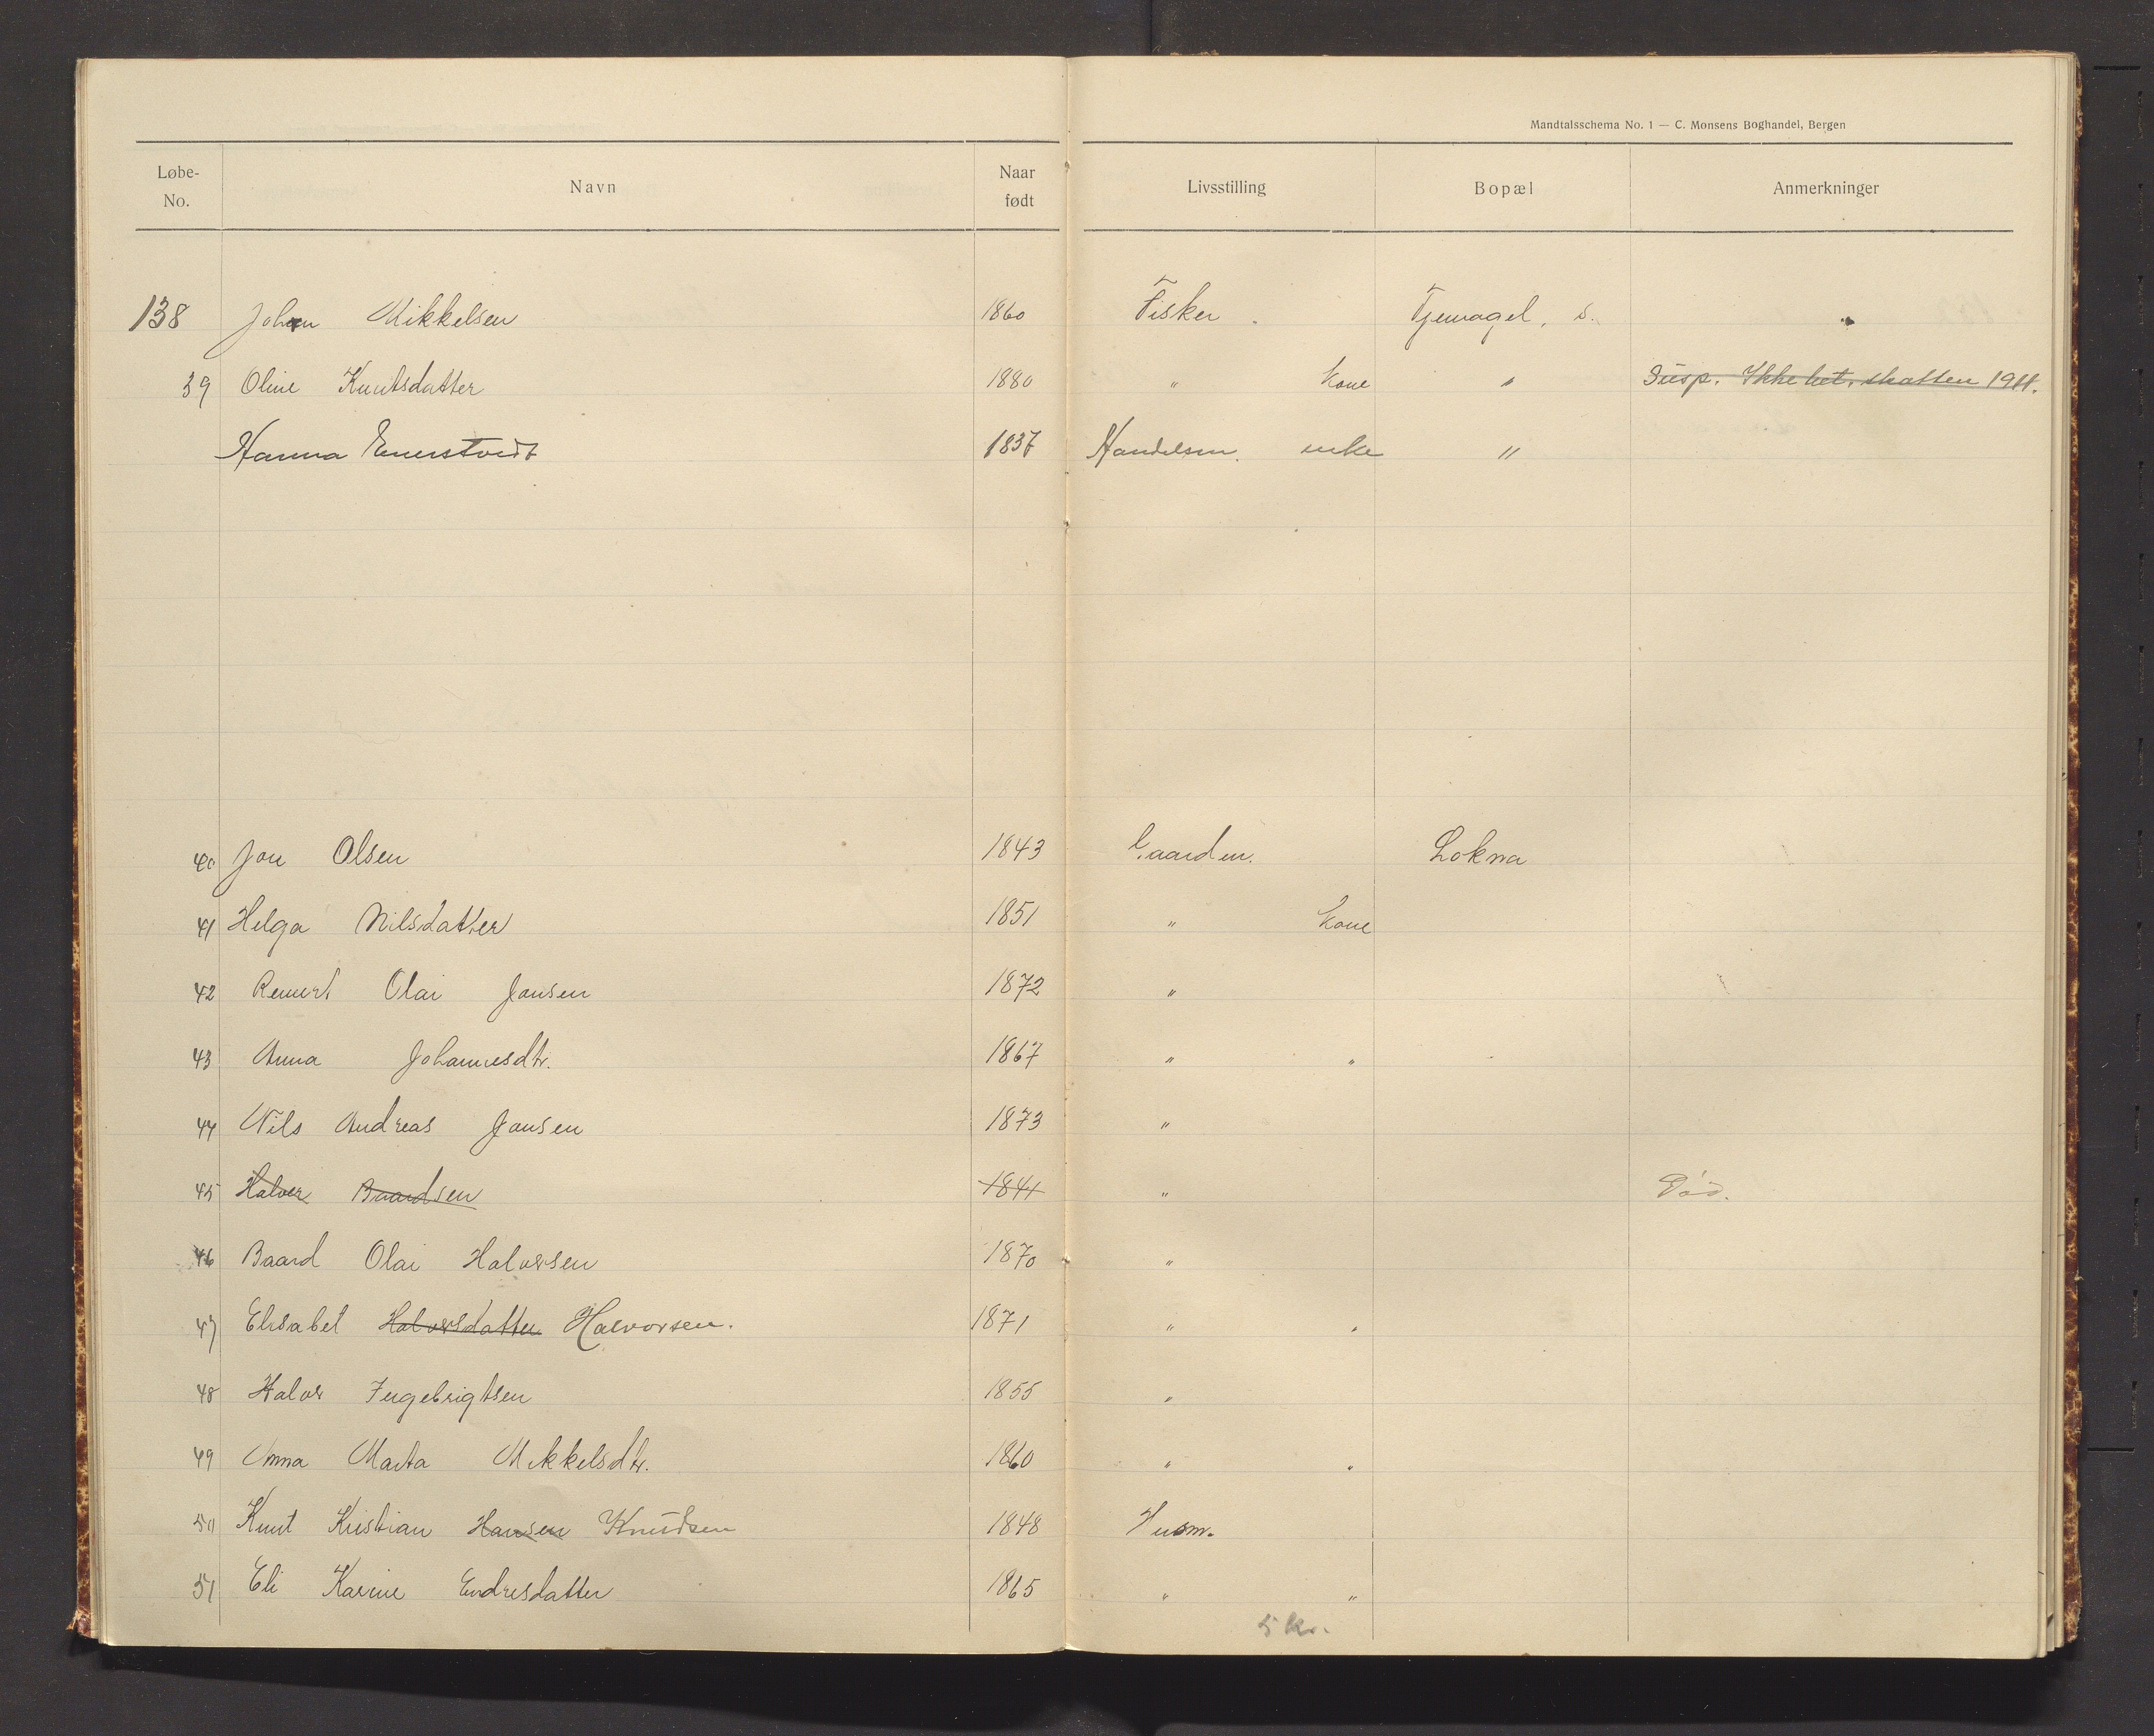 Mandtalsschema No. 1 — C. Monsens Boghandel, Bergen
Løbe-No. Navn Naar født Livsstilling Bopæl Anmerkninger
138 Johan Mikkelsen 1860 Fisker Tjernagel, s.
39 Oline Knutsdatter 1880 " kone " Susp. Ikke bet. skatten 1911.
Hanna Enerstvedt 1837 Handelsm. enke "
40 Jon Olsen 1843 Gaardm. Lokna
41 Helga Nilsdatter 1851 " kone
42 Remert Olai Jonsen 1872 "
43 Anna Johannesdtr. 1867 " "
44 Nils Andreas Jonsen 1873 "
45 Halvor Baardsen 1841 " Død.
46 Baard Olai Halvorsen 1870 "
47 Elisabet Halvorsdatter Halvorsen. 1871 " "
48 Halvor Ingebrigtsen 1855 "
49 Anna Marta Mikkelsdtr. 1860 " "
50 Knut Kristian Hansen Knudsen 1848 Husm.
51 Eli Karine Endresdatter 1865 " "
5 kr.